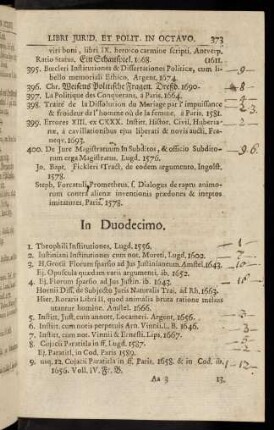 LIBRI JURID. ET POLIT. IN OCTAVO. 373
viri boni, libri IX. heroico carmine scripti, Antverp.
Ratio status, Ein Schauspiel. 1668. (1611.
395. Bœcleri Institutiones & Dissertationes Politicæ, cum li-
bello memoriali Ethico. Argent. 1674.
396. Chr. Weisens Politische Fragen. Dreßd. 1690.
397. La Politique des Conquerans, à Paris. 1664.
398. Traité de la Dissolution du Mariage par l'impuissance
& froideur de l'homme où de la femme, à Paris. 1581.
399. Errores XIII. ex CXXX. Instit. Histor. Civil. Huberia-
næ, à cavillationibus ejus liberati & novis aucti, Fra-
neqv. 1693.
400. De Jure Magistratuum in Subditos, & officio Subdito-
rum erga Magistratus. Lugd. 1576.
Jo. Bapt. Fickleri Tract. de eodem argumento, Ingolst.
1578.
Steph. Forcatuli Prometheus, s. Dialogus de raptu animo-
rum contra alienæ inventionis prædones & ineptos
imitatores, Paris. 1578.
In Duodecimo,
1. Theophili Institutiones, Lugd. 1596.
2. Justiniani Institutiones cum not. Mureti, Lugd. 1602.
3. H. Grotii Florum sparsio ad Jus Justinianeum. Amstel. 1643.
Ej. Opuscula quædam varii argumenti, ib. 1652.
4. Ej. Florum sparsio ad Jus Justin. ib. 1643.
Hornii Diss. de Subjecto Juris Naturalis Trai. ad Rh. 1663.
Hier. Rorarii Libri II, quod animalia bruta ratione melius
utantur homine. Amstel. 1666.
5. Instit. Just. cum annot. Locameri. Argent. 1656.
6. Instit. cum notis perpetuis Arn. Vinnii. L. B. 1646.
7. Instit. cum not. Vinnii & Ernesti. Lips. 1667.
8. Cujacii Paratitla in ff. Lugd. 1585.
Ej. Paratitl. in Cod. Paris 1589.
9. usq. 12. Cujacii Paratitla in ff. Paris. 1658. & in Cod. ib.
1656. Voll. IV.
Aa 3 13.